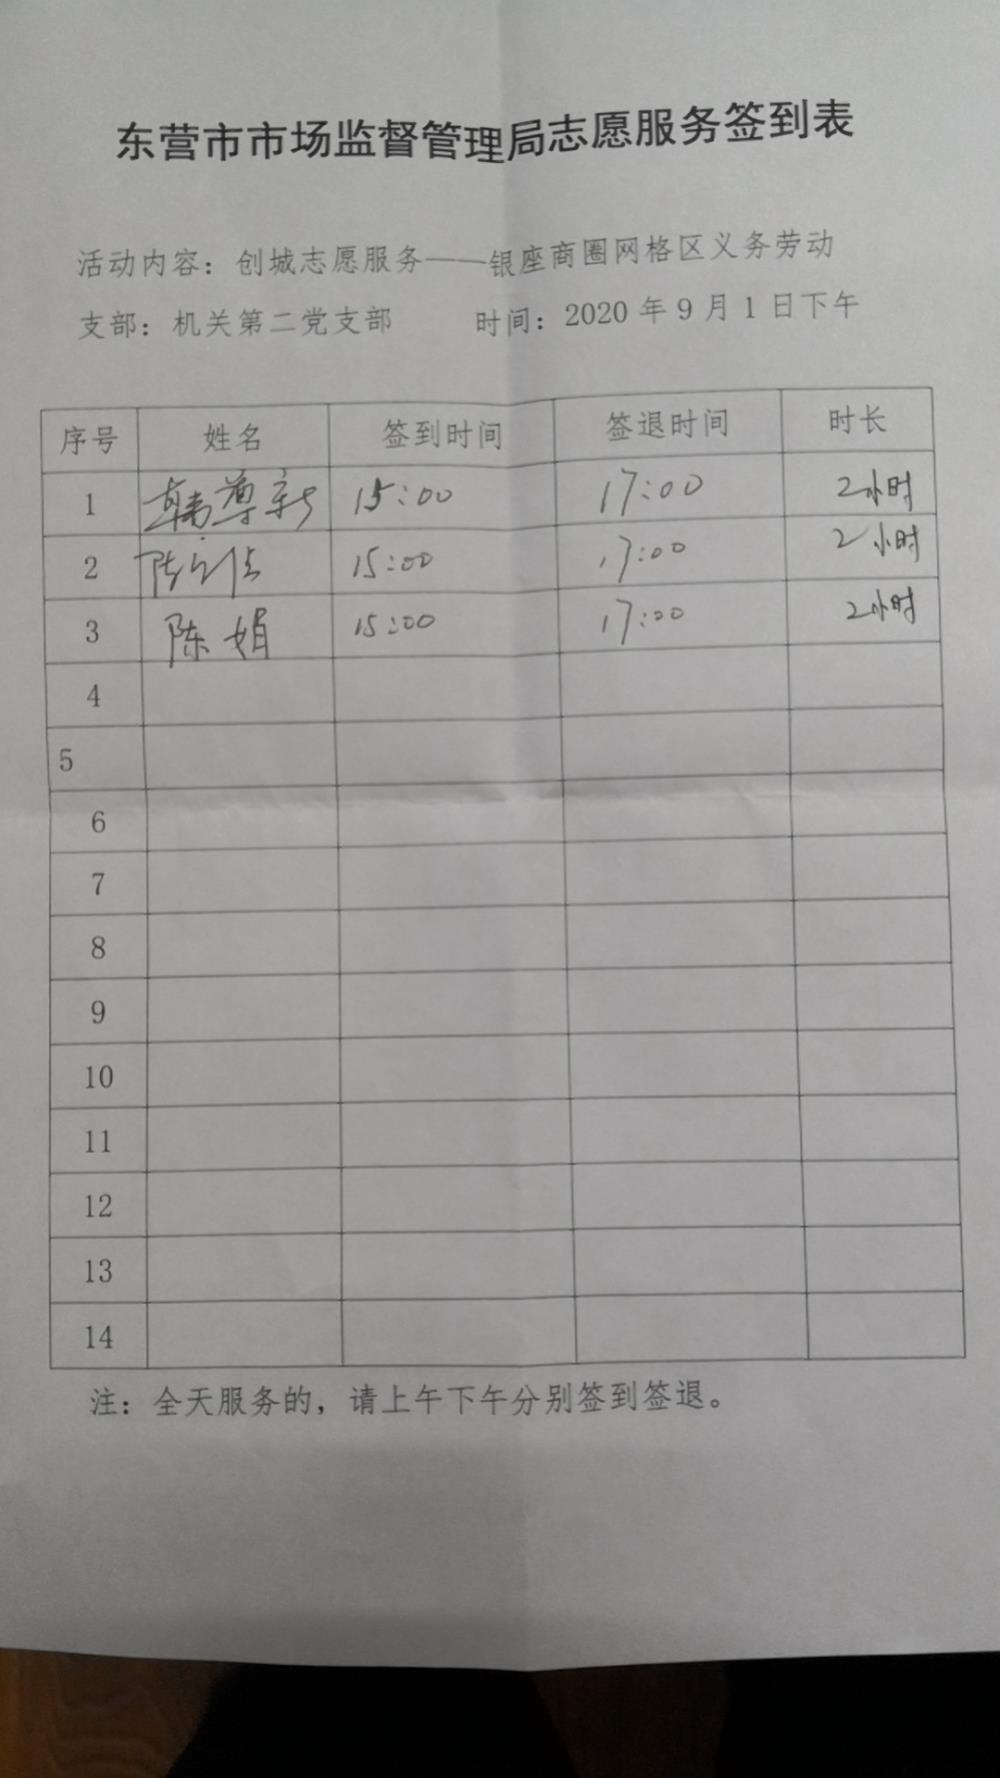 东营市市场监督管理局志愿服务签到表
活动内容：创城志愿服务——银座商圈网格区义务劳动
支部：机关第二党支部 时间：2020年9月1日下午
序号 姓名 签到时间 签退时间 时长
1 韩尊新 15:00 17:00 2小时
2 15:00 17:00 2小时
3 陈娟 15:00 17:00 2小时
4
5
6
7
8
9
10
11
12
13
14
注：全天服务的，请上午下午分别签到签退。